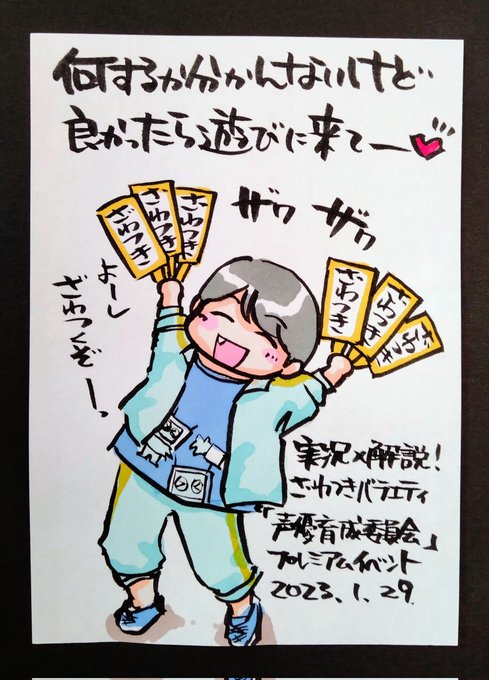 何するか分かんないけど
良かったら遊びに来てー
ザワ ザワ
ざわつき
ざわつき
ざわつき
ざわつき
ざわつき
よーし
ざわつくぞーっ
実況×解説!
ざわつきバラエティ
「声優育成委員会」
プレミアムイベント
2023.1.29